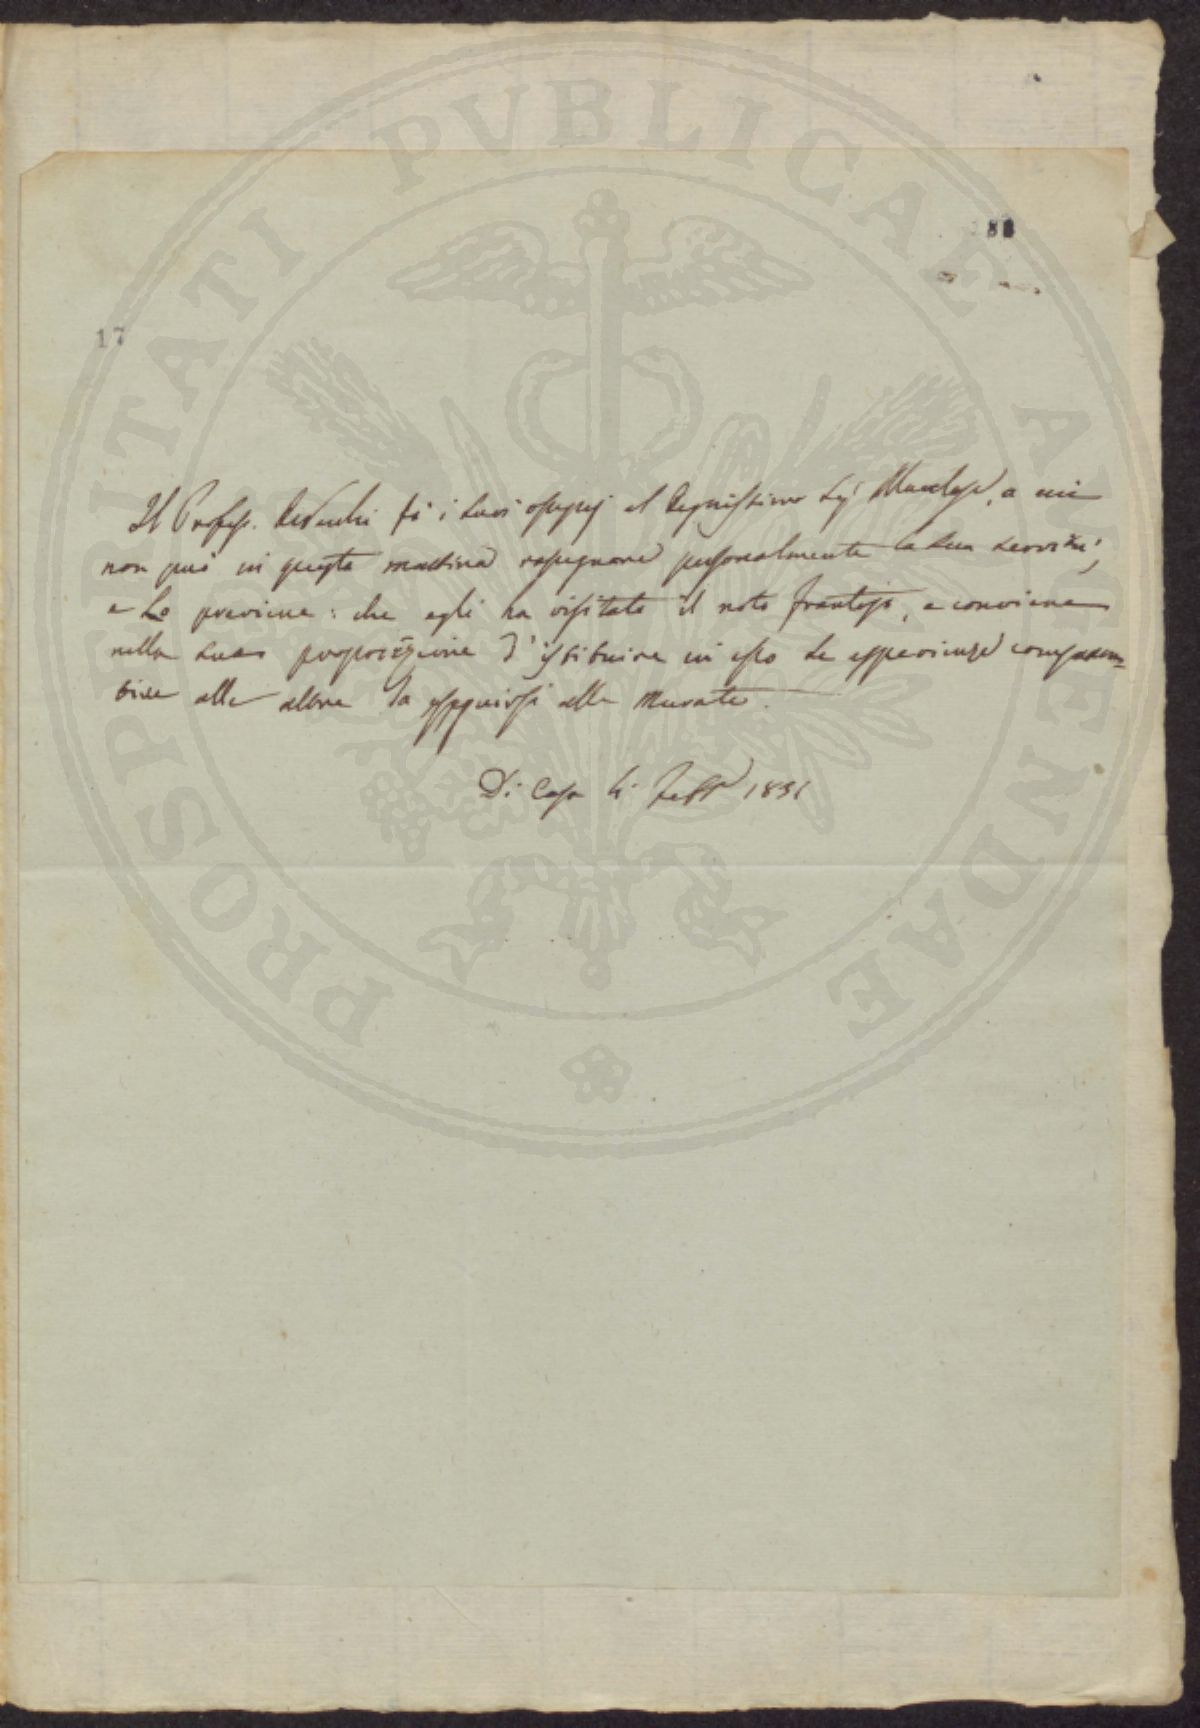 PROSPERITATI PVBLICAE AVGENDAE
17
Il Profess. fà i suoi ossequj al Degnissimo Sig.r a cui
non può in questa mattina rassegnare personalmente la sua servitù;
e Lo previene: che egli ha visitato il noto Frantojo, e conviene
nella sua proposizione d'istituire in esso le esperienze compara=
tive alle altre da eseguirsi alle Murate.
Di Casa li Febb.o 1831